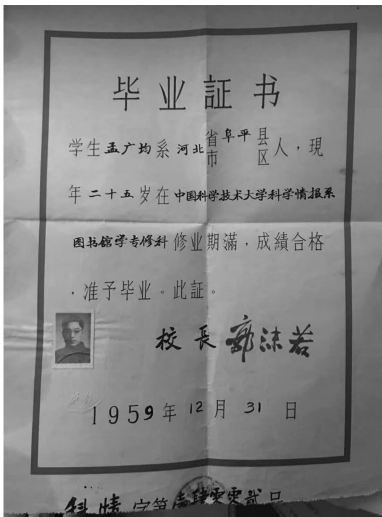 毕业証书
学生孟广均系河北省市阜平县区人，现
年二十五岁在中国科学技术大学科学情报系
图书館学专修科修业期滿，成績合格
，准予毕业。此証。
校長郭沫若
1959年12月31日
科情字第